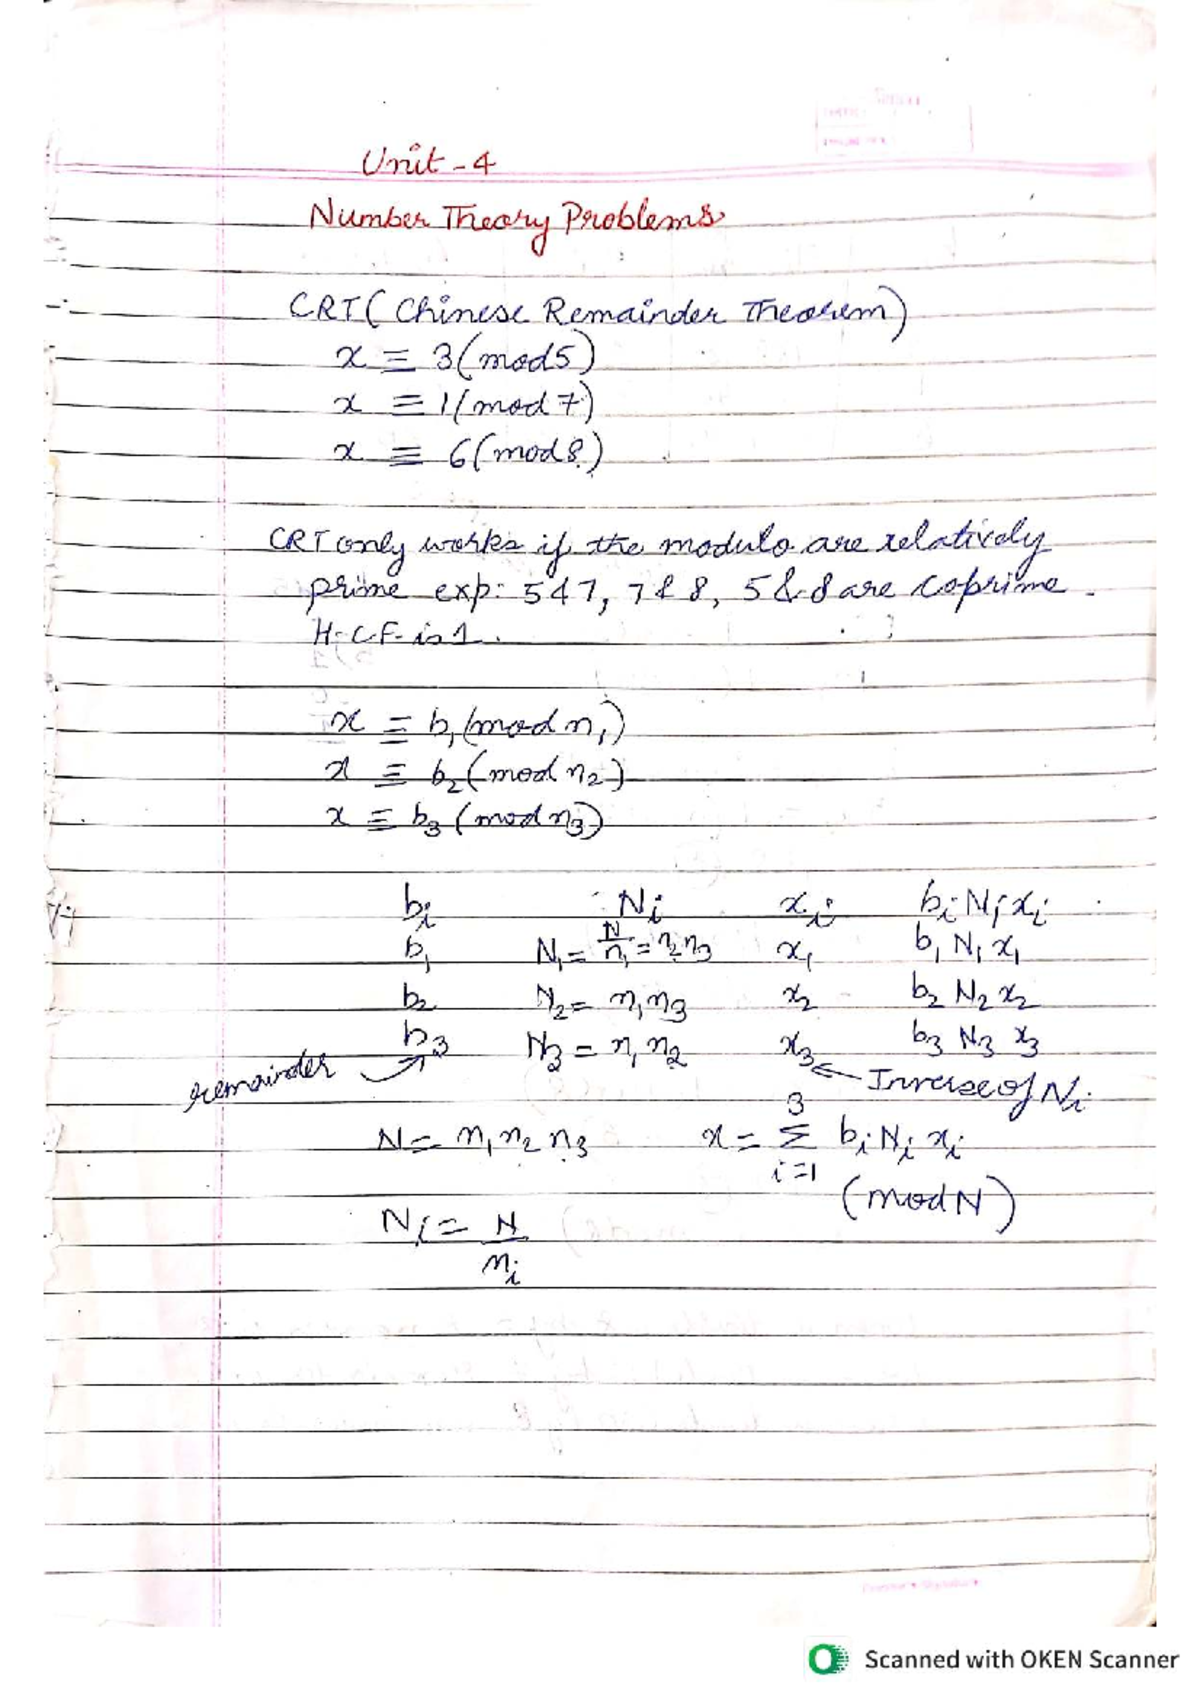 Unit - 4
Number Theory Problems
CRT ( Chinese Remainder Theorem)
x ≡ 3(mod5)
x ≡ 1(mod 7)
x ≡ 6(mod8)
CRT only works if the modulo are relatively
prime exp: 5 & 7, 7 & 8, 5 & 8 are coprime.
H.C.F. is 1.
x ≡ b₁(mod n₁)
x ≡ b₂(mod n₂)
x ≡ b₃(mod n₃)
bᵢ Nᵢ xᵢ bᵢ Nᵢ xᵢ
b₁ N₁ = N/n₁ = n₂n₃ x₁ b₁ N₁ x₁
b₂ N₂ = n₁n₃ x₂ b₂ N₂ x₂
b₃ N₃ = n₁ n₂ x₃ b₃ N₃ x₃
remainder ← Inverse of Nᵢ
N = n₁ n₂ n₃ x = 3 Σ i=1 bᵢ Nᵢ xᵢ
(mod N)
Nᵢ = N/nᵢ
Scanned with OKEN Scanner